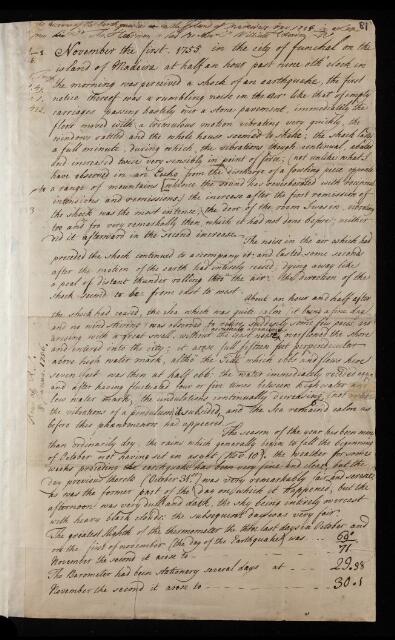 81
November the first 1755 in the city of Funchal on the
island of Madeira at half an hour past nine oth clock in
the morning was perceived a shock of an earthquake, the first
notice thereof was a rumbling noise in the air like that of empty
carriages passing hastily over a stone pavement, immediately the
floor moved with a tremulous motion vibrating very quickly, the
windows rattled and the whole house seemed to shake; the shock lasted
a full minute, during which, the vibrations though continual, abated
and increased twice very sensibly in point of force; (not unlike what I
have observed in an Echo, from the discharge of a fowling piece
a range of mountains whence the sound has reverberated with frequent
intensions and remissions;) the increase after the first remission of
the shock was the most intense; the door of the room I was in, vibrating
too and fro very remarkably then, which it had not done before; neither
did it afterward in the second increase.
The noise in the air which had
preceded the shock continued to accompany it; and lasted some seconds
after the motion of the earth had intirely ceased; dying away like
a peal of distant thunder rolling thro' the air: the direction of the
shock seemd to be from east to west.
About an hour and half after
the shock had ceased, the Sea which was quite calm, it being a fine day
and no wind stirring; was observed to retire suddenly some few paces and
arising with a great swell, without the least noise overflowed the shore
and entred into the city; it arose full fifteen feet perpendicular
above high water mark; altho' the Tide which ebbs and flows here
seven feet was then at half ebb: the water immediately receded again
and after having fluctuated four or five times between high water and
low water mark; the undulations continually decreasing, (not unlike
the vibrations of a pendulum) it subsided, and the Sea remained calm as
before this phaenomenon had appeared.
The season of the year has been more
than ordinarily dry, the rains which generally begin to fall the beginning
of October not having set in as yet; (Nov: 10th). the weather for some
weeks preceding the earthquake has been very fine and clear, but the
day previous thereto (October 31st) was very remarkably fair and serene;
as was the former part of the day on which it happened; but the
afternoon was very dull and dark, the sky being entirely overcast
with heavy black clouds: the subsequent day was very fair.
The greatest Height of the thermometer the two last days in October and
on the first of November (the day of the Earthquake) was - - 69°
November the second it arose to - - - - - 71
The Barometer had been stationary several days at - - - 29.98
November the second it arose to - - - - - 30.1